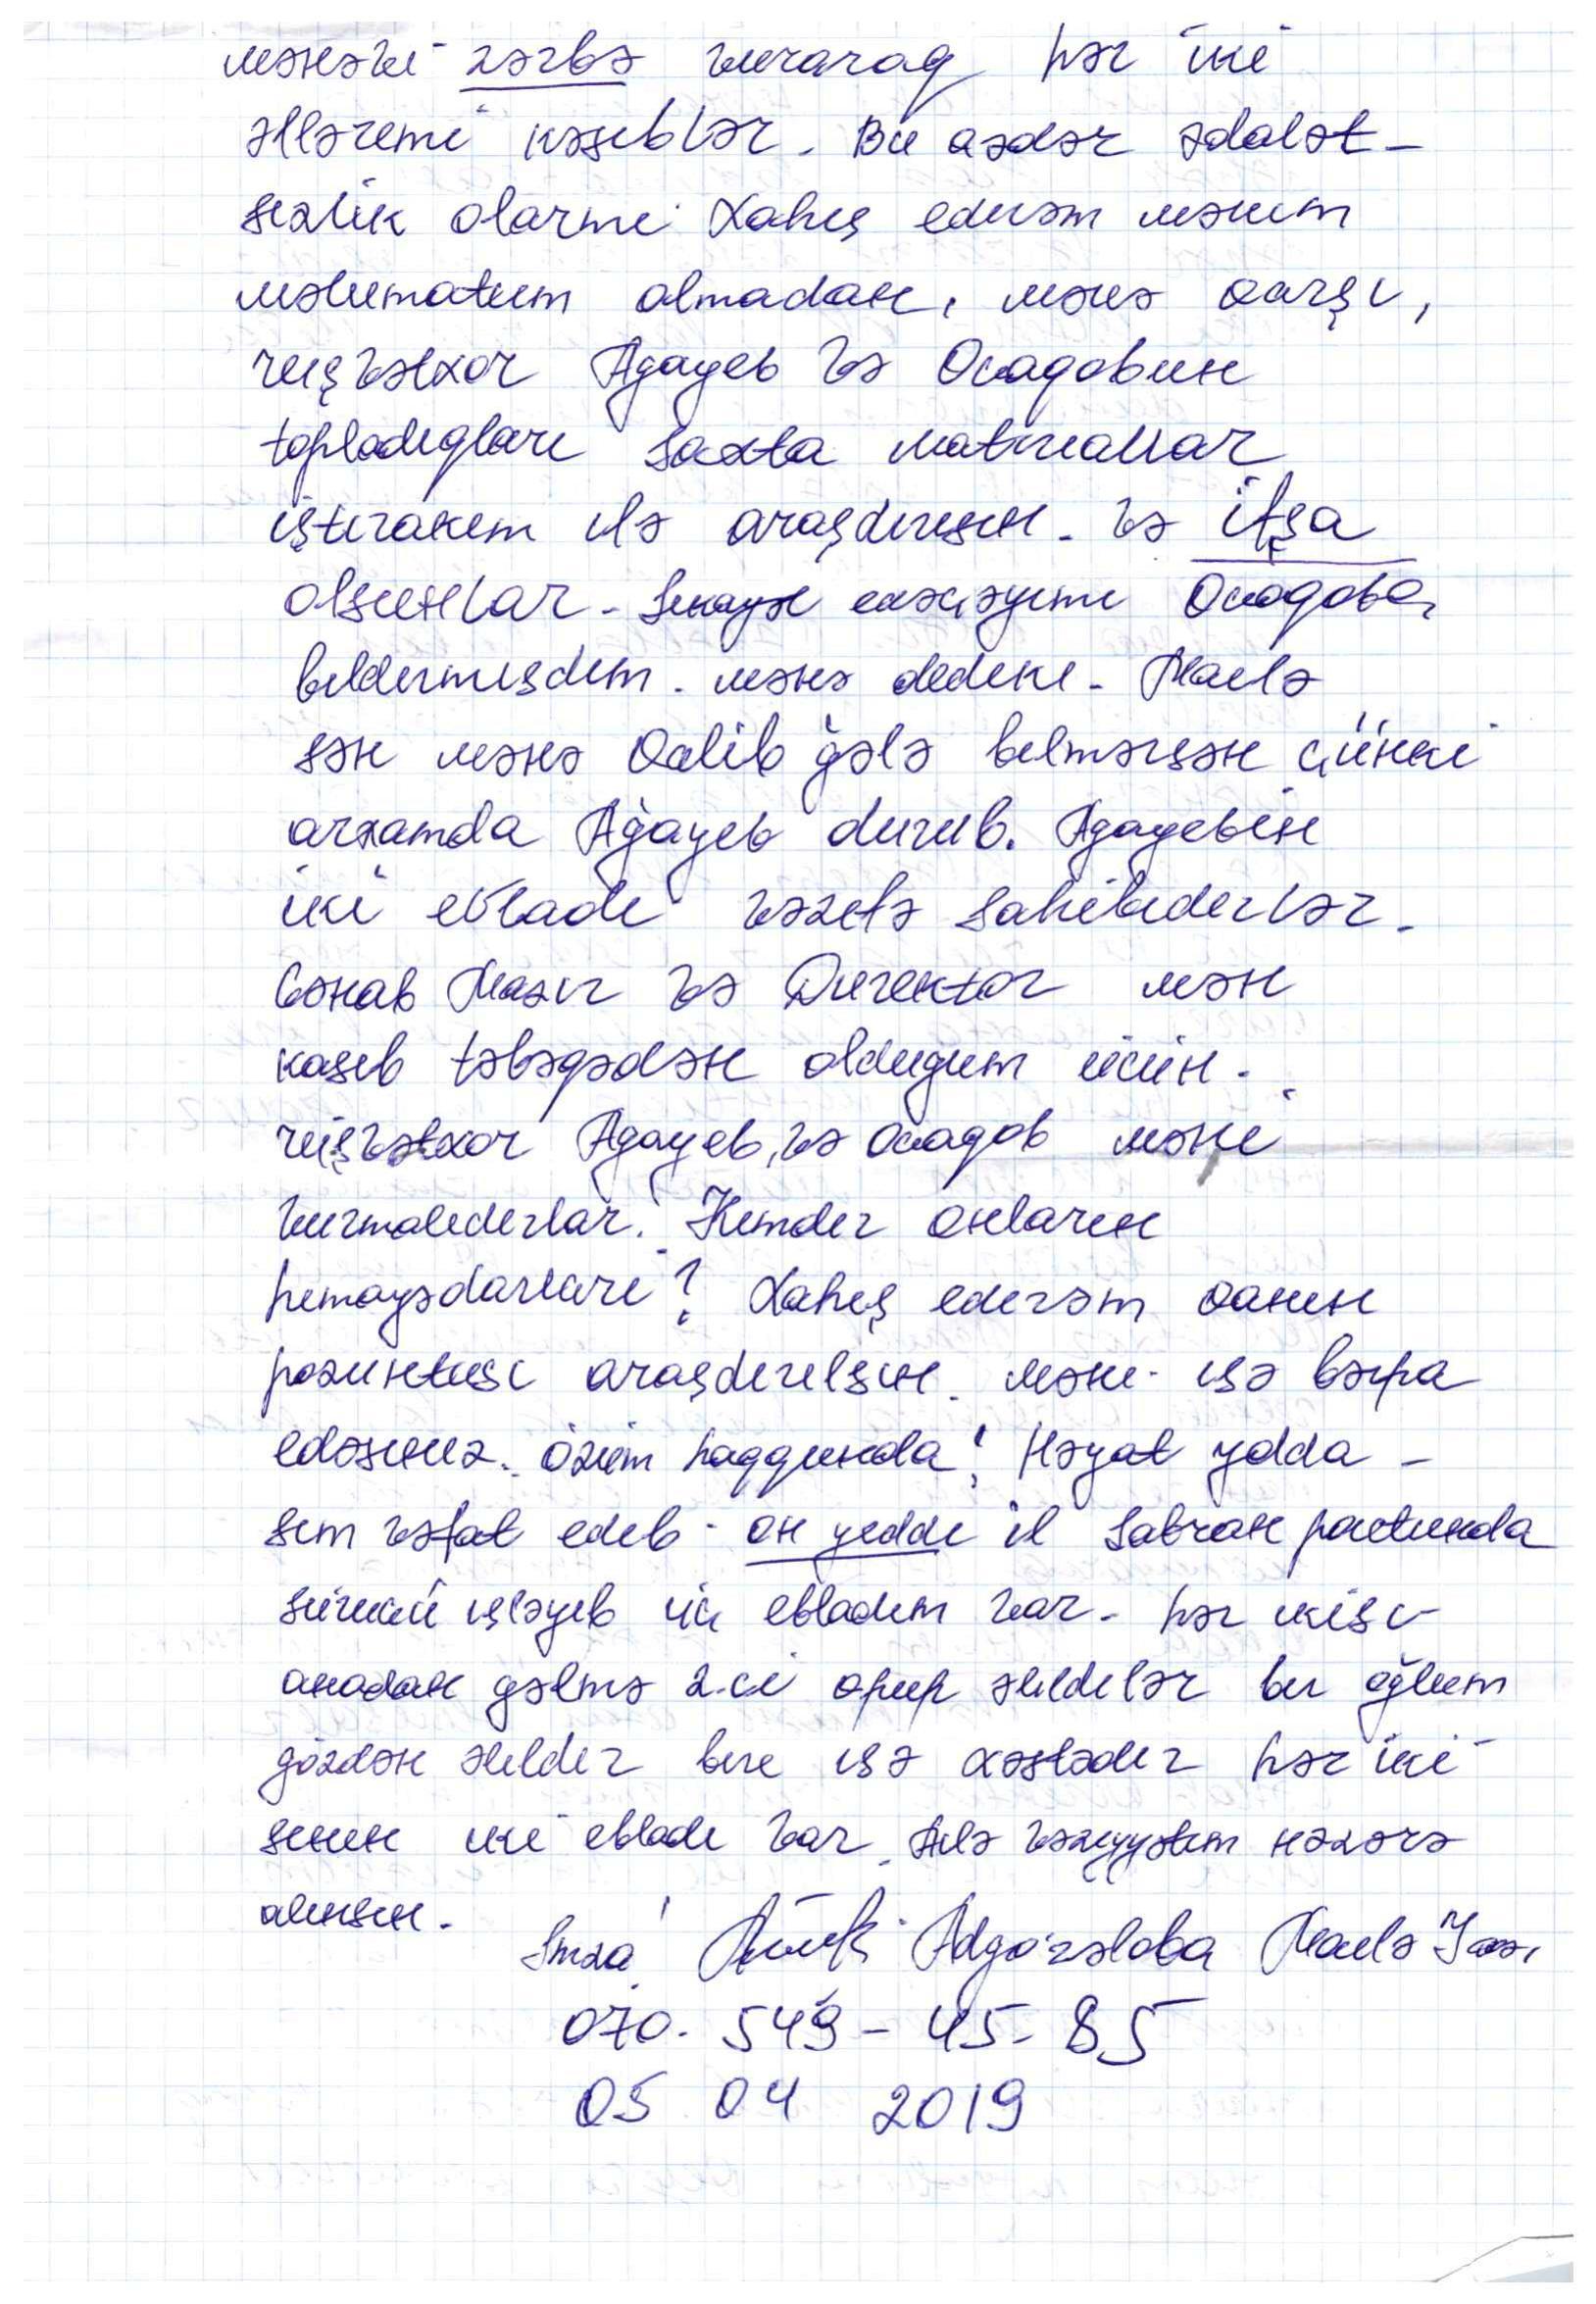 mənəvi zərbə vuraraq hər iki
əllərimi kəsiblər. Bu qədər ədalət-
sizlik olarmı Xahiş edirəm mənim
məlumatım olmadan, mənə qarşı,
rüşvətxor Ağayev və Ocaqovun
topladıqları saxta materiallar
iştirakım ilə araşdırılsın. və ifşa
olsunlar. Şikayət edəcəyimi Ocaqova
bildirmişdim. mənə dediki. Mailə
sən mənə Qalib gələ bilməzsən çünki
arxamda Ağayev durub. Ağayevin
iki evladı vəzifə sahibidirlər.
Cənab Nazir və Direktor mən
kasıb təbəqədən olduğum üçün.
rüşvətxor Ağayev, və Ocaqov məni
vurmalıdırlar. Kimdir onların
himayədarları? Xahiş edirəm qanun
pozuntusu araşdırılsın. məni işə bərpa
edəsiniz. özüm haqqında! Həyat yolda-
şım vəfat edib. on yeddi il Şabran poctunda
sürücü işləyib üç evladım var. hər ikisi
anadan gəlmə 2.ci qrup əlildilər bir oğlum
gözdən əlildir biri isə xəstədir hər iki
sinin iki evladı var. Ailə vəziyyətim nəzərə
alınsın.
İmza Adgözəlova Mailə
070. 549-45-85
05 04 2019